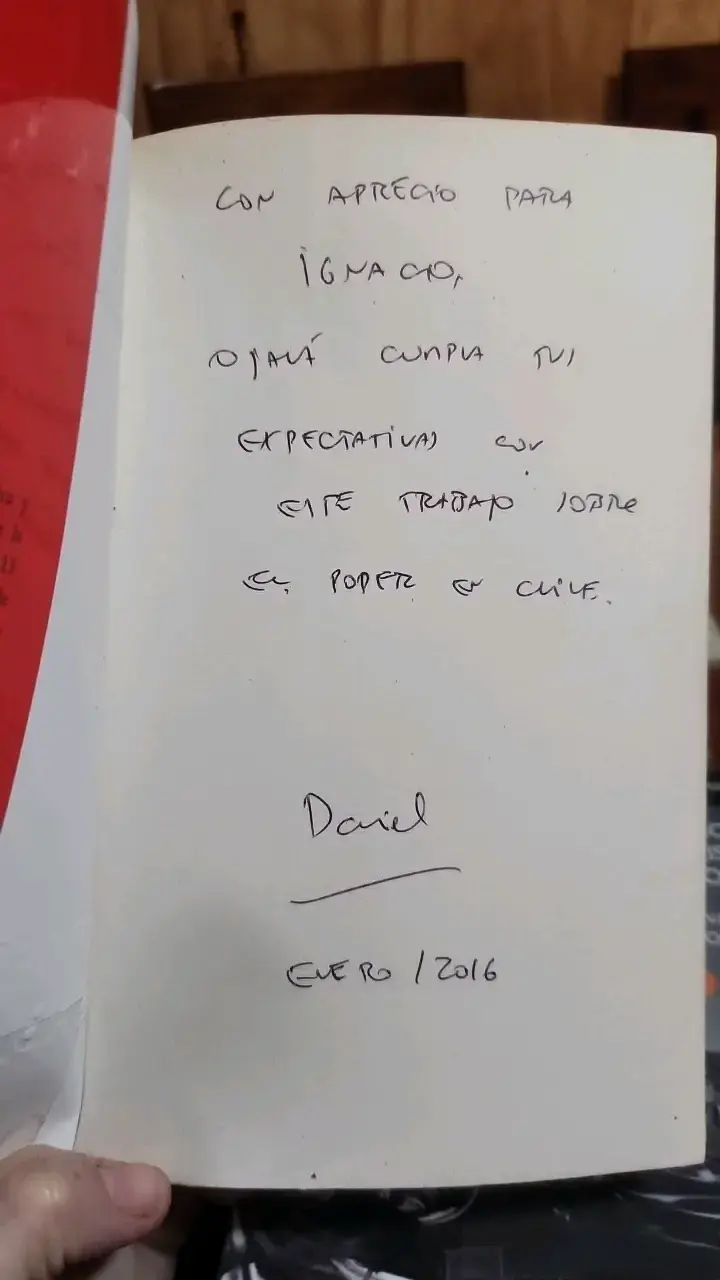 CON APRECIO PARA
IGNACIO,
OJALÁ CUMPLA TUS
EXPECTATIVAS CON
ESTE TRABAJO SOBRE
EL PODER EN CHILE.
Daniel
ENERO / 2016